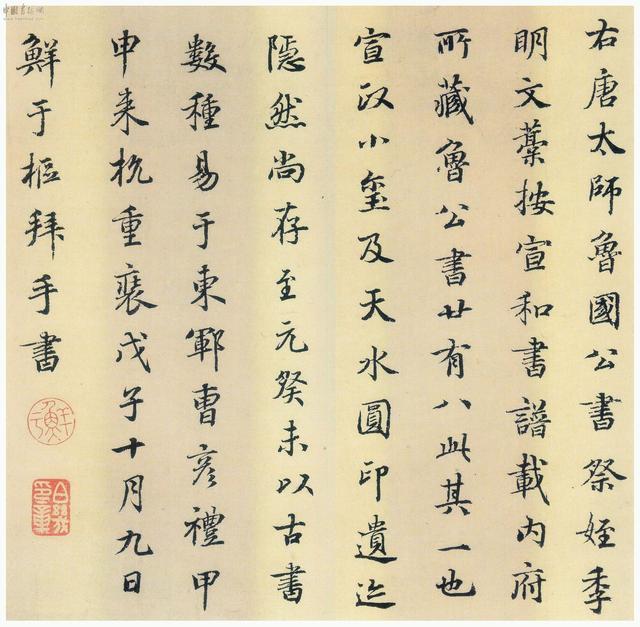 右唐太師魯國公書祭姪季
明文藁按宣和書譜載內府
所藏魯公書廿有八此其一也
宣政小璽及天水圓印遺迹
隱然尚存至元癸未以古書
數種易于東鄆曹彦禮甲
申来杭重裝戊子十月九日
鮮于樞拜手書
鮮
中国書法網